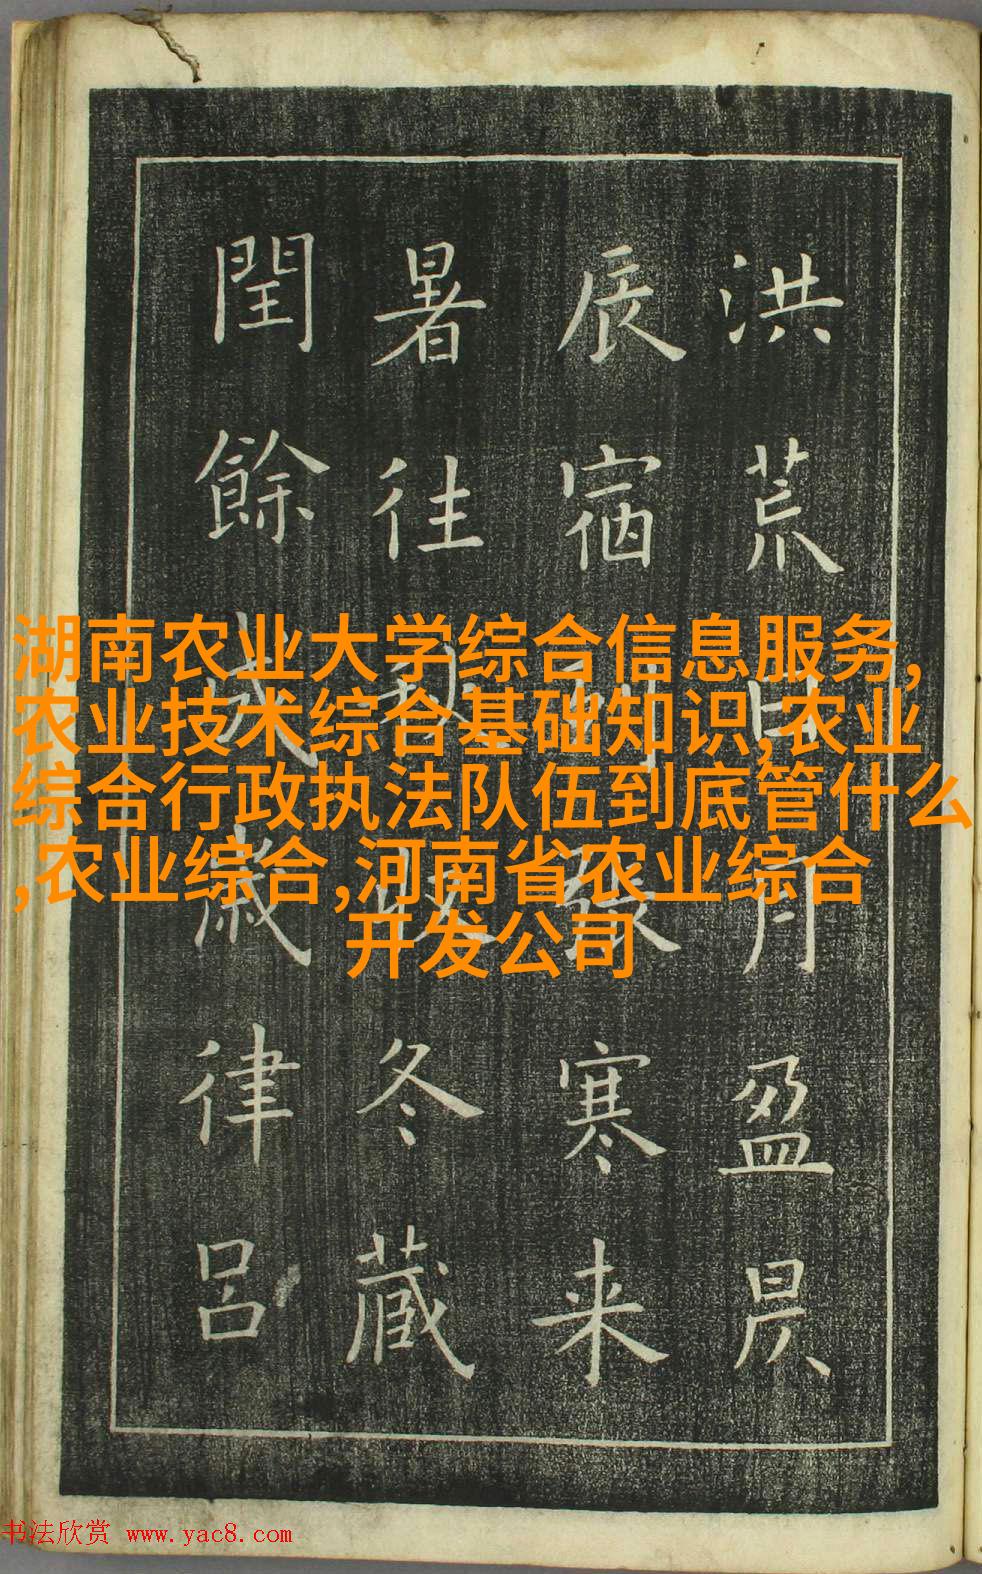 洪荒日月盈昃
辰宿列張寒来
暑往秋收冬藏
閏餘成歲律呂
湖南农业大学综合信息服务,
农业技术综合基础知识,农业
综合行政执法队伍到底管什么
,农业综合,河南省农业综合
开发公司
书法欣赏 www.yac8.com